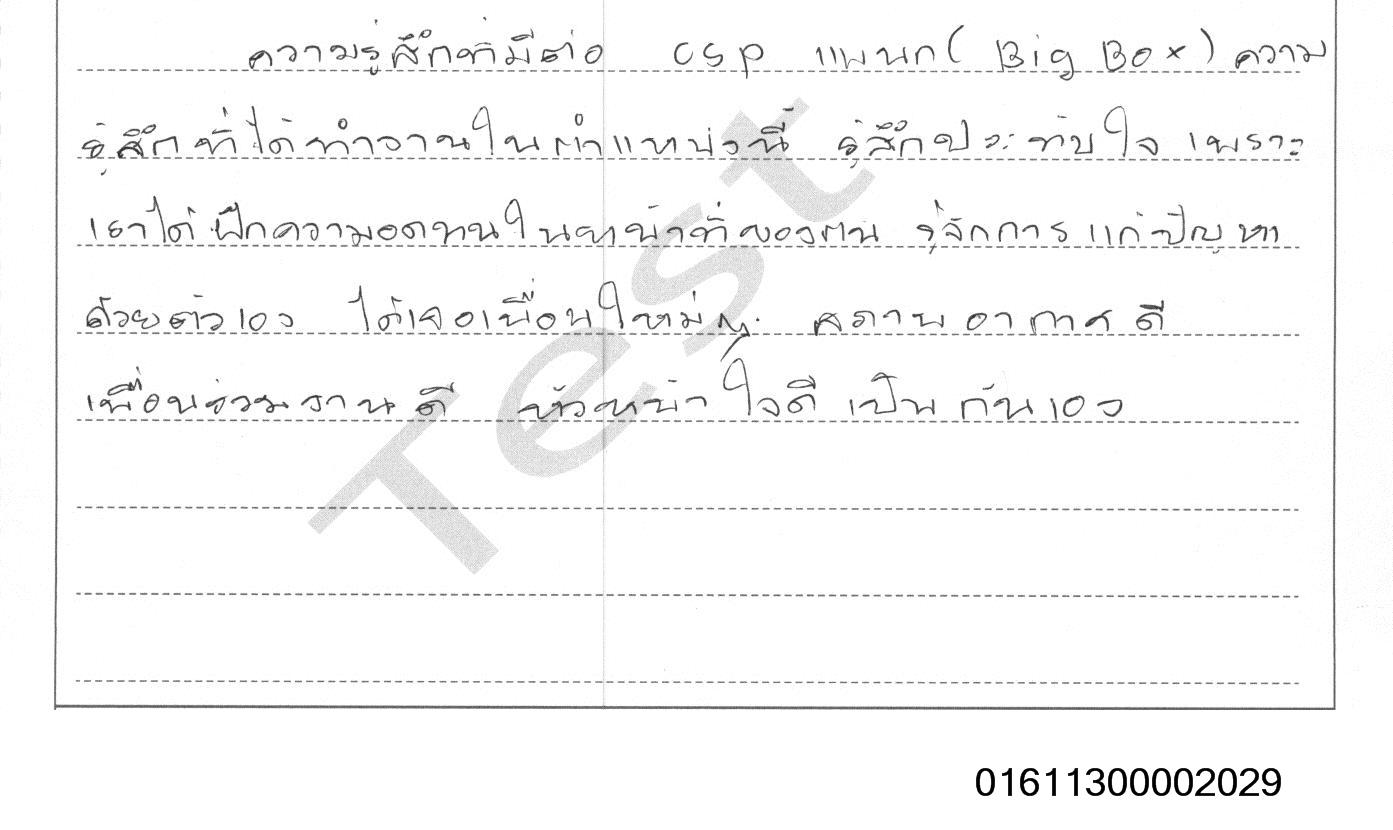 ความรู้สึกที่มีต่อ CSP แผนก ( Big Box ) ความ
รู้สึกที่ได้ทำงานในตำแหน่งนี้ รู้สึกประทับใจ เพราะ
เราได้ฝึกความอดทนในหน้าที่ของตน รู้จักการแก้ปัญหา
ด้วยตัวเอง ได้เจอเพื่อนใหม่ๆ สภาพอากาศดี
เพื่อนร่วมงานดี หัวหน้าใจดี เป็นกันเอง
Test
01611300002029